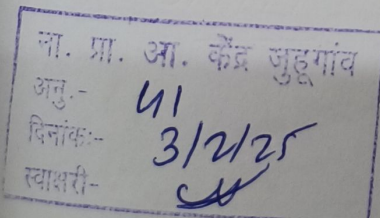 ना. प्रा. आ. केंद्र जुहूगांव
अनु.- 41
दिनांक:- 3/2/25
स्वाक्षरी-